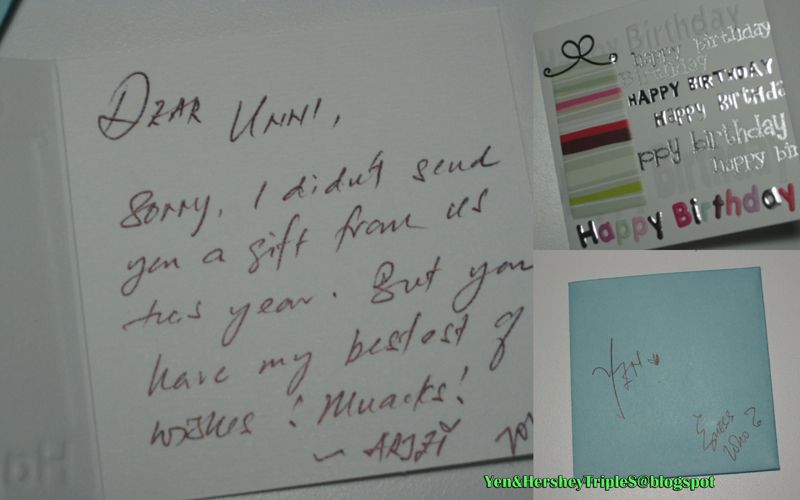 Dear Unni,
Sorry, I didn't send
you a gift from us
this year. But you
have my bestest of
wishes! Muacks!
Happy Birthday
happy birthday
HAPPY BIRTHDAY
Happy Birthda
ppy birthday
happy bir
Happy Birthday
Yen
Guess
Who?
Yen&HersheyTripleS@blogspot